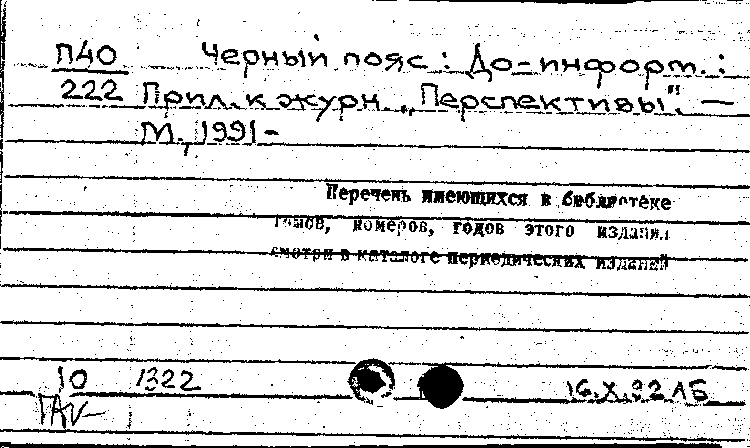 П40 Черный пояс : До-информ. :
222 Прил. к журн. „Перспективы". —
М., 1991 -
Перечень имеющихся в библиотеке
томов, номеров, годов этого издания
смотри в каталоге периодических изданий
10 1322 16.X.92 ЛБ